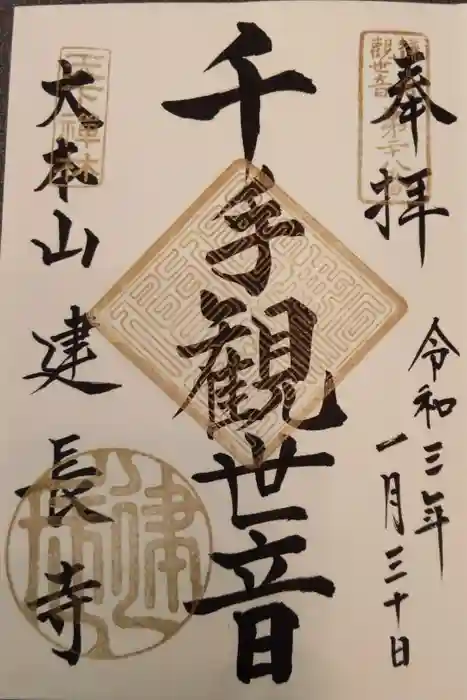 奉拝
令和三年
一月三十日
千手観世音
大本山建長寺